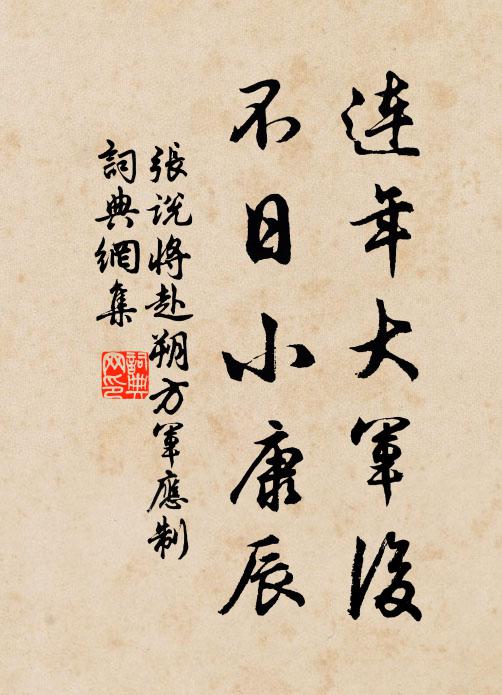 連年大軍後
不日小康辰
張說將赴朔方軍應制
詞典網集
詞典网印